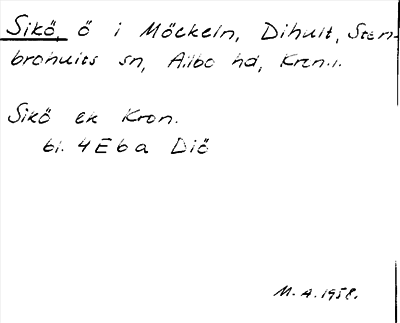 Sikö, ö i Möckeln, Dihult, Sten-
brohults sn, Allbo hd, Kron.l.
Sikö ek Kron.
bl. 4 E 6 a Diö
M. A. 1958.